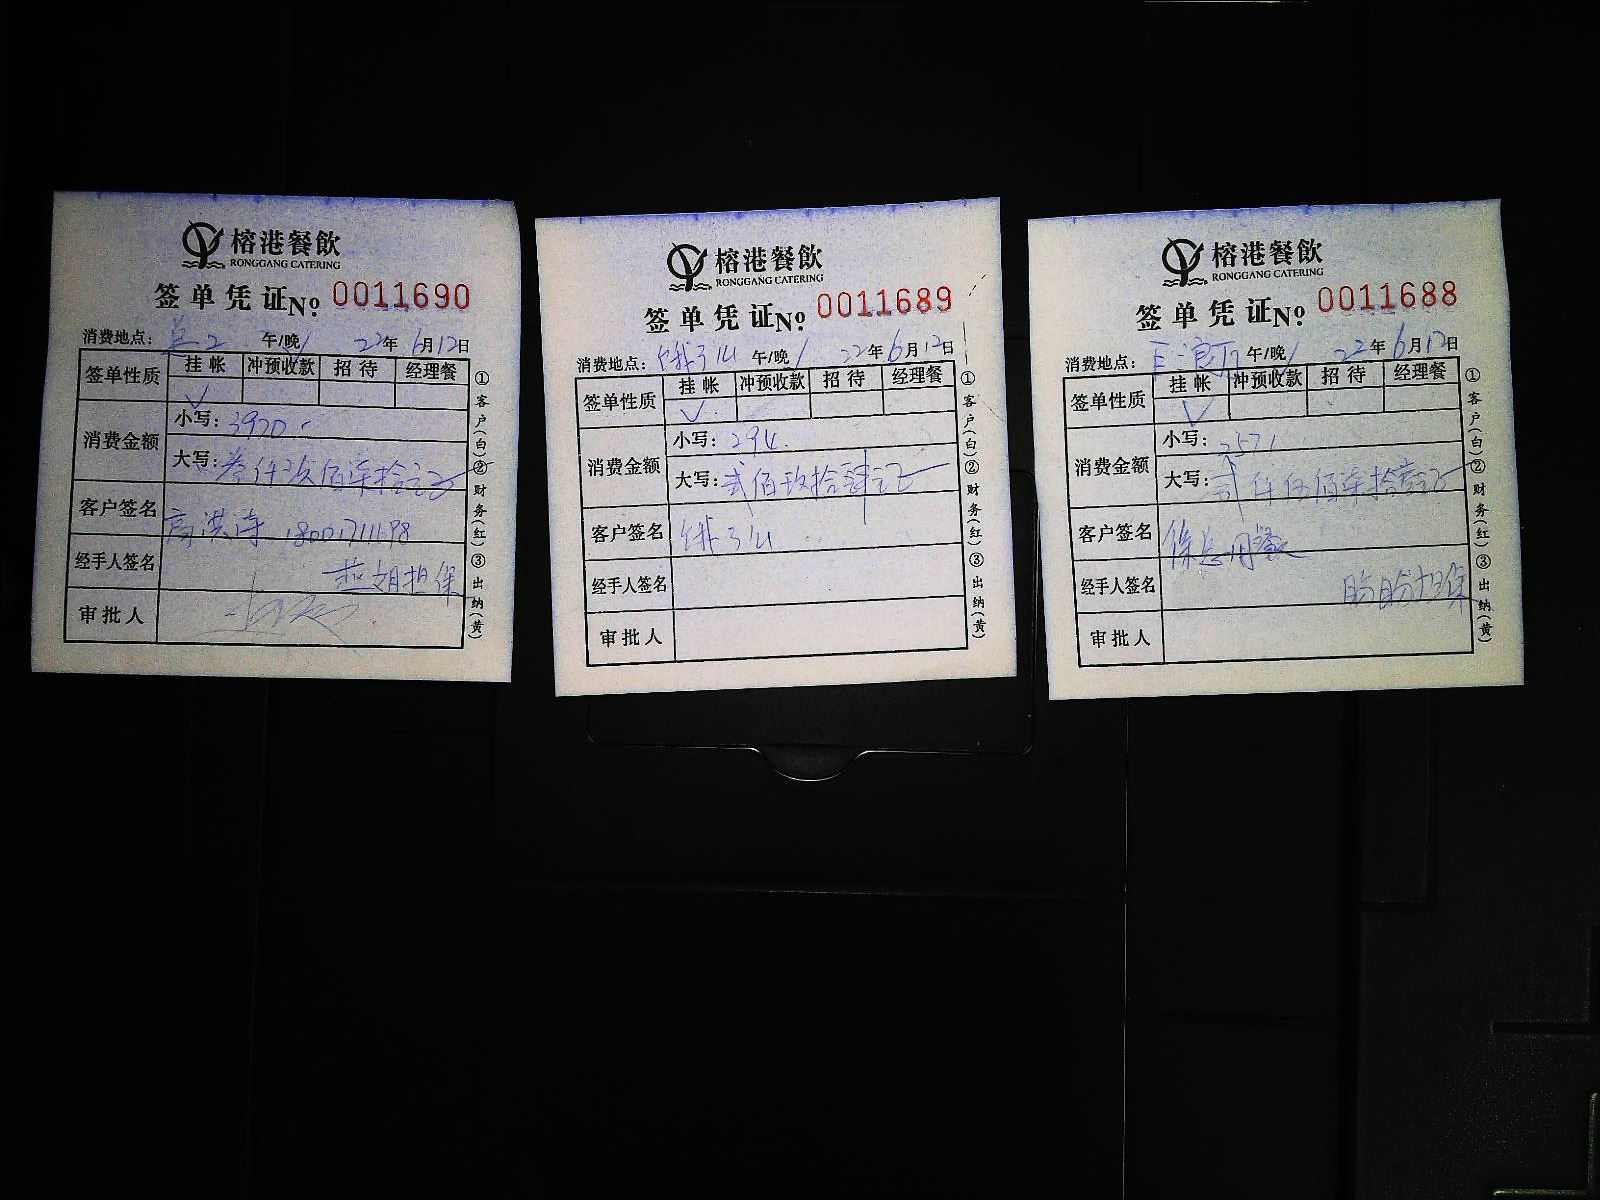 榕港餐飲
RONGGANG CATERING
签单凭证 No 0011690
消费地点: 午/晚 22年6月12日
签单性质 挂帐 冲预收款 招待 经理餐
✓
消费金额 小写: 3970
大写: 叁仟玖佰柒拾元正
客户签名
经手人签名 燕姐担保
审批人
①客户(白)②财务(红)③出纳(黄)
榕港餐飲
RONGGANG CATERING
签单凭证 No 0011689
消费地点: 饿了么 午/晚 22年6月12日
签单性质 挂帐 冲预收款 招待 经理餐
✓
消费金额 小写: 294.
大写: 贰佰玖拾肆元正
客户签名 饿了么
经手人签名
审批人
①客户(白)②财务(红)③出纳(黄)
榕港餐飲
RONGGANG CATERING
签单凭证 No 0011688
消费地点: 午/晚 22年6月12日
签单性质 挂帐 冲预收款 招待 经理餐
✓
消费金额 小写: 2571
大写: 贰仟伍佰柒拾壹元正
客户签名 徐总用餐
经手人签名 盼盼担保
审批人
①客户(白)②财务(红)③出纳(黄)